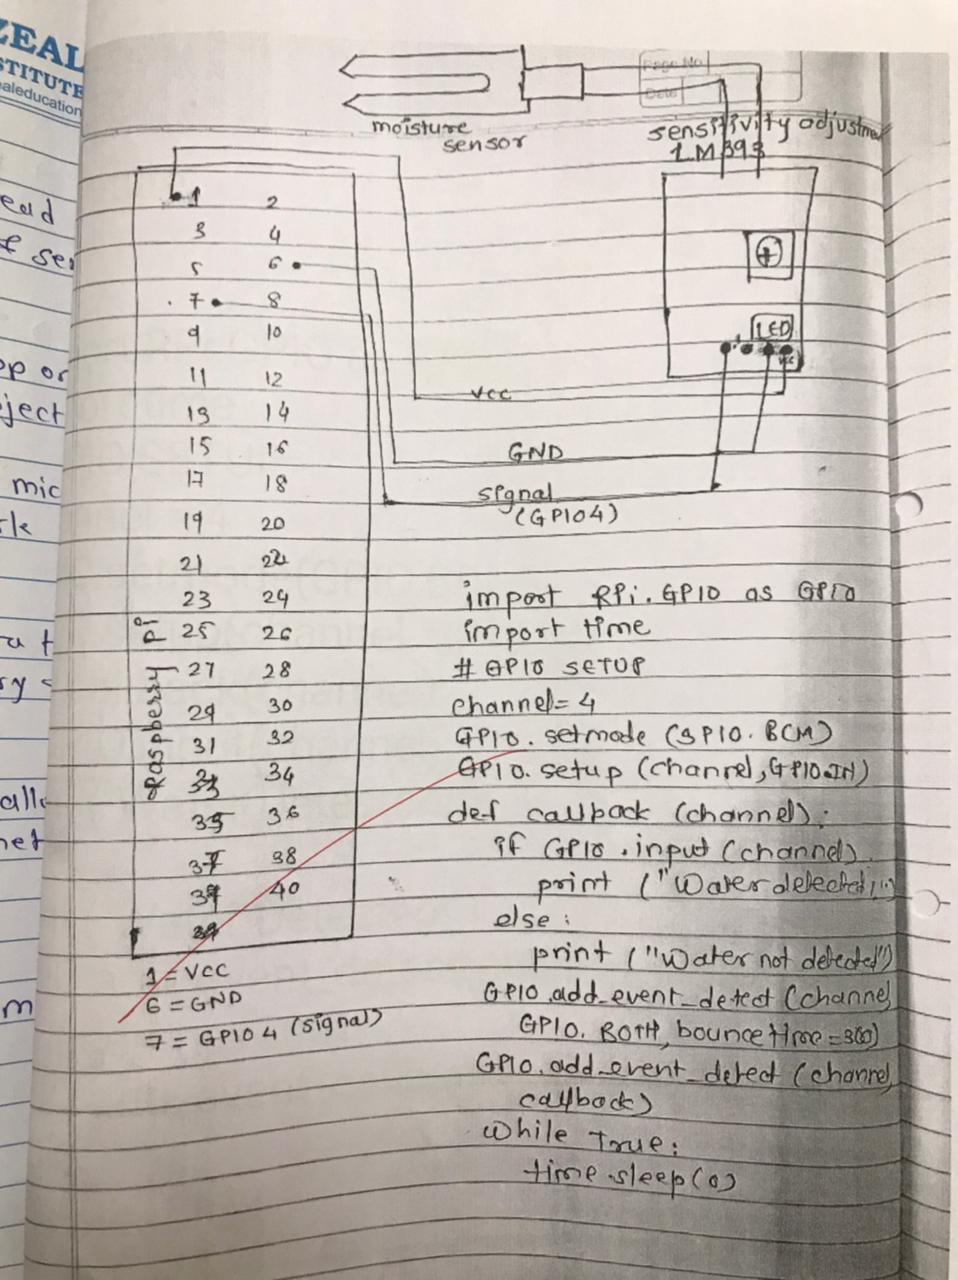 ZEAL
STITUTE
ealeducation
Page No
Date
moisture
sensor
sensitivity adjustme
LM393
1 2
3 4
5 6
7 8
9 10
11 12
13 14
15 16
17 18
19 20
21 22
23 24
25 26
27 28
29 30
31 32
33 34
35 36
37 38
39 40
39
Raspberry Pi
LED
VCC
VCC
GND
signal
(GPIO4)
1 = VCC
6 = GND
7 = GPIO 4 (signal)
import RPi.GPIO as GPIO
import time
# GPIO SETUP
channel = 4
GPIO.setmode (GPIO.BCM)
GPIO.setup (channel, GPIO.IN)
def callback (channel):
if GPIO.input (channel)
print ("Water detected!")
else:
print ("Water not detected")
GPIO.add_event_detect (channel
GPIO.BOTH, bouncetime=300)
GPIO.add_event_detect (channel
callback)
while True:
time.sleep(0)
ead
f ser
op or
ject
mic
rk
ra t
ry
allo
net
m